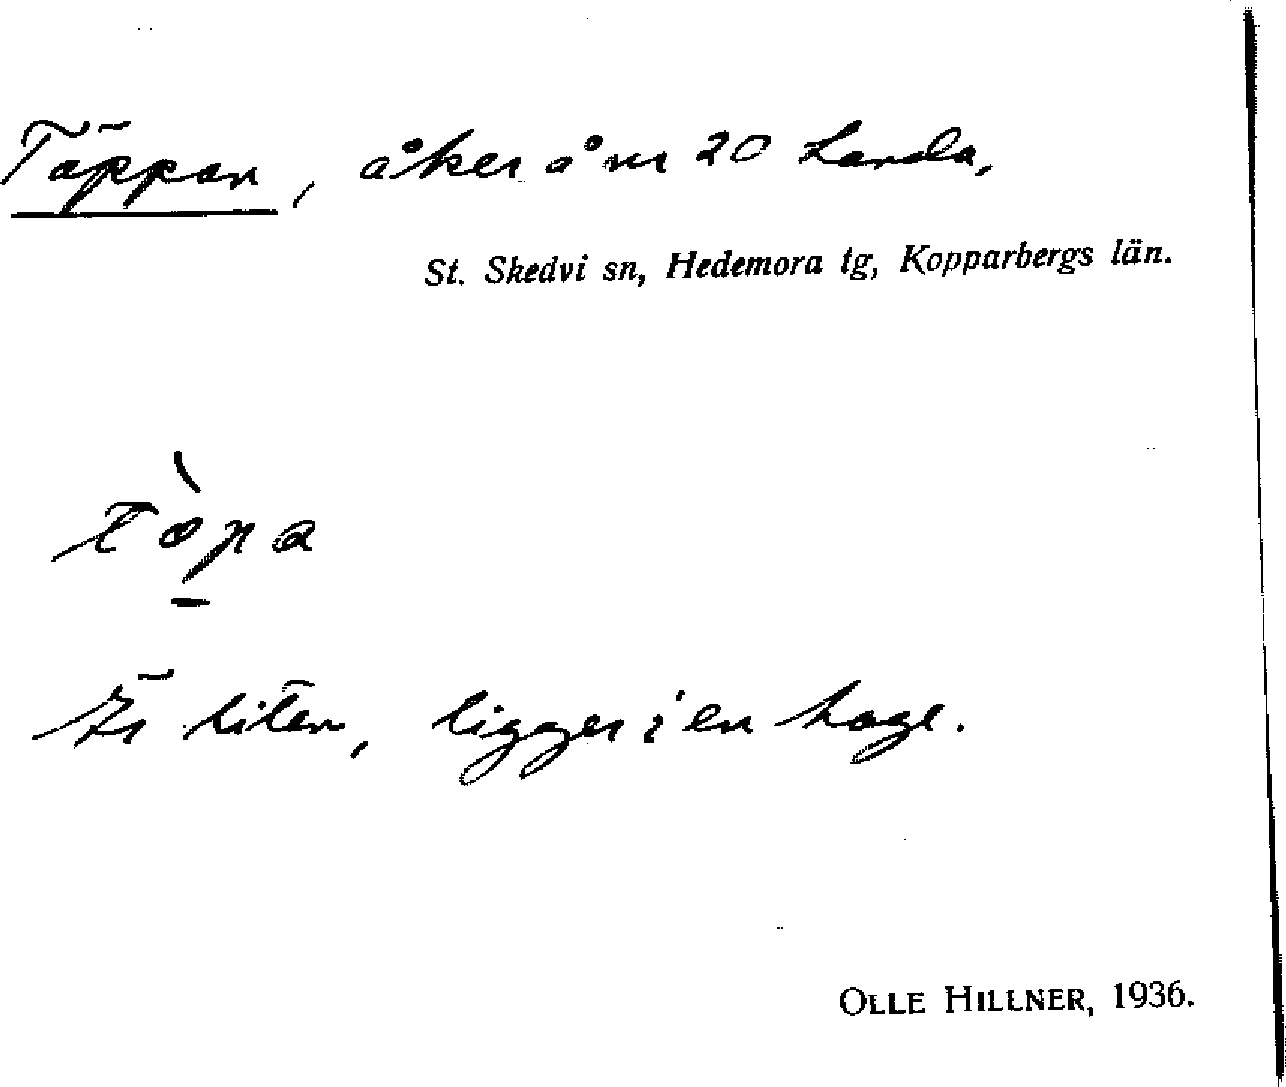 Täppan, åker å nr 20 Landa,
St. Skedvi sn, Hedemora tg, Kopparbergs län.
tòpa
Är liten, ligger i en hage.
OLLE HILLNER, 1936.